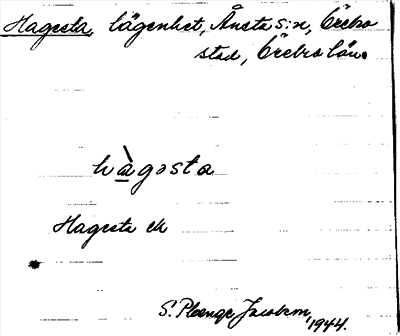 Hagesta, lägenhet, Ånsta s:n, Örebro
stad, Örebro län.
hàgosta
Hagesta ek
S. Plenge Jacobson, 1944.